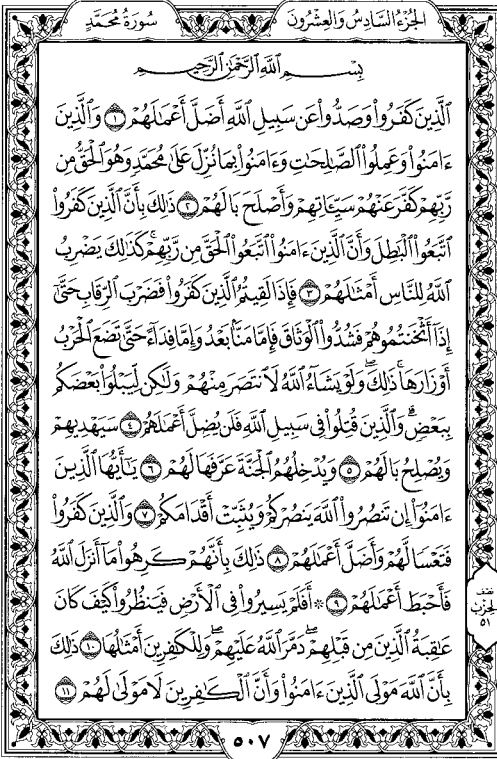 سُورَةُ مُحَمَّد
الجُزْءُ السَّادِسُ وَالعِشْرُونَ
بِسْمِ اللَّهِ الرَّحْمَٰنِ الرَّحِيمِ
الَّذِينَ كَفَرُوا۟ وَصَدُّوا۟ عَن سَبِيلِ اللَّهِ أَضَلَّ أَعْمَٰلَهُمْ ١ وَالَّذِينَ
ءَامَنُوا۟ وَعَمِلُوا۟ الصَّٰلِحَٰتِ وَءَامَنُوا۟ بِمَا نُزِّلَ عَلَىٰ مُحَمَّدٍ وَهُوَ الْحَقُّ مِن
رَّبِّهِمْ كَفَّرَ عَنْهُمْ سَيِّـَٔاتِهِمْ وَأَصْلَحَ بَالَهُمْ ٢ ذَٰلِكَ بِأَنَّ الَّذِينَ كَفَرُوا۟
اتَّبَعُوا۟ الْبَٰطِلَ وَأَنَّ الَّذِينَ ءَامَنُوا۟ اتَّبَعُوا۟ الْحَقَّ مِن رَّبِّهِمْ ۚ كَذَٰلِكَ يَضْرِبُ
اللَّهُ لِلنَّاسِ أَمْثَٰلَهُمْ ٣ فَإِذَا لَقِيتُمُ الَّذِينَ كَفَرُوا۟ فَضَرْبَ الرِّقَابِ حَتَّىٰٓ
إِذَآ أَثْخَنتُمُوهُمْ فَشُدُّوا۟ الْوَثَاقَ فَإِمَّا مَنًّۢا بَعْدُ وَإِمَّا فِدَآءً حَتَّىٰ تَضَعَ الْحَرْبُ
أَوْزَارَهَا ۚ ذَٰلِكَ ۖ وَلَوْ يَشَآءُ اللَّهُ لَانتَصَرَ مِنْهُمْ وَلَٰكِن لِّيَبْلُوَا۟ بَعْضَكُم
بِبَعْضٍ ۗ وَالَّذِينَ قُتِلُوا۟ فِى سَبِيلِ اللَّهِ فَلَن يُضِلَّ أَعْمَٰلَهُمْ ٤ سَيَهْدِيهِمْ
وَيُصْلِحُ بَالَهُمْ ٥ وَيُدْخِلُهُمُ الْجَنَّةَ عَرَّفَهَا لَهُمْ ٦ يَٰٓأَيُّهَا الَّذِينَ
ءَامَنُوٓا۟ إِن تَنصُرُوا۟ اللَّهَ يَنصُرْكُمْ وَيُثَبِّتْ أَقْدَامَكُمْ ٧ وَالَّذِينَ كَفَرُوا۟
فَتَعْسًا لَّهُمْ وَأَضَلَّ أَعْمَٰلَهُمْ ٨ ذَٰلِكَ بِأَنَّهُمْ كَرِهُوا۟ مَآ أَنزَلَ اللَّهُ
فَأَحْبَطَ أَعْمَٰلَهُمْ ٩ ۞ أَفَلَمْ يَسِيرُوا۟ فِى الْأَرْضِ فَيَنظُرُوا۟ كَيْفَ كَانَ
عَٰقِبَةُ الَّذِينَ مِن قَبْلِهِمْ ۚ دَمَّرَ اللَّهُ عَلَيْهِمْ ۖ وَلِلْكَٰفِرِينَ أَمْثَٰلُهَا ١٠ ذَٰلِكَ
بِأَنَّ اللَّهَ مَوْلَى الَّذِينَ ءَامَنُوا۟ وَأَنَّ الْكَٰفِرِينَ لَا مَوْلَىٰ لَهُمْ ١١
نصف
الحزب
٥١
٥٠٧